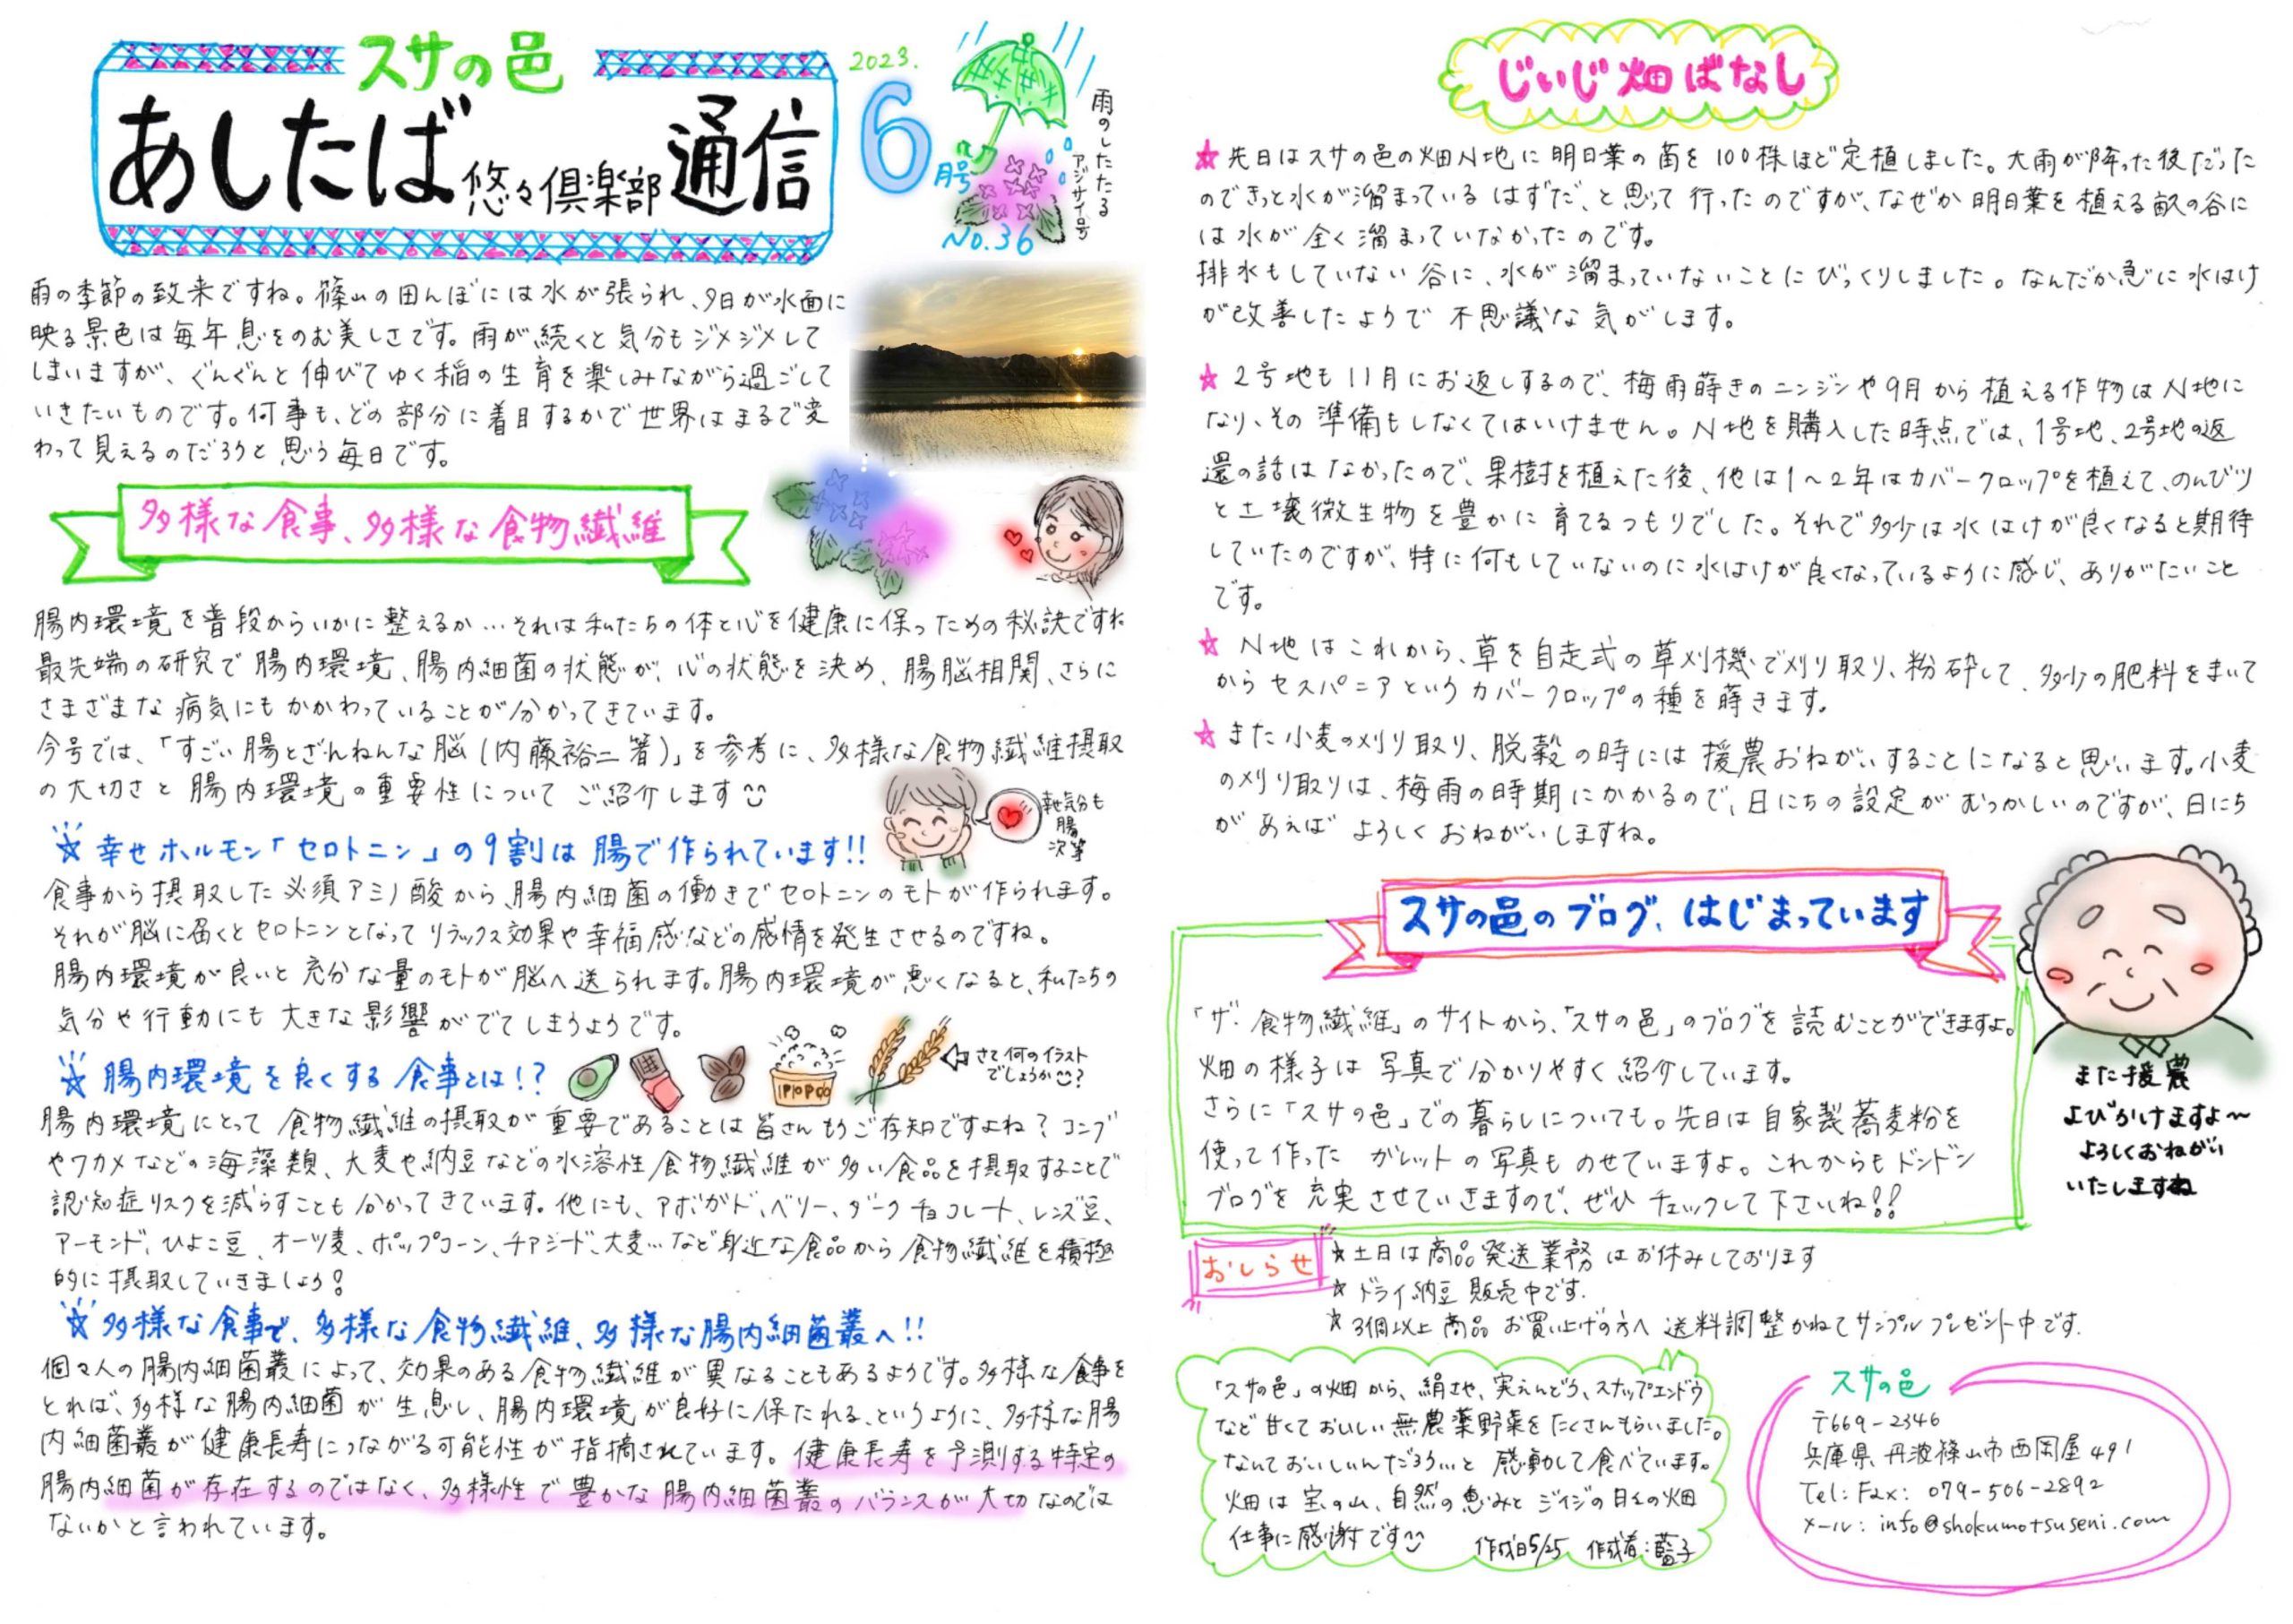 スサの邑
あしたば悠々倶楽部通信
2023.
6月号
雨のしたたる
アジサイ号
No.36
雨の季節の致来ですね。篠山の田んぼには水が張られ、夕日が水面に
映る景色は毎年息をのむ美しさです。雨が続くと気分もジメジメして
しまいますが、ぐんぐんと伸びてゆく稲の生育を楽しみながら過ごして
いきたいものです。何事も、どの部分に着目するかで世界はまるで変
わって見えるのだろうと思う毎日です。
多様な食事、多様な食物繊維
腸内環境を普段からいかに整えるか…それは私たちの体と心を健康に保つための秘訣ですね
最先端の研究で腸内環境、腸内細菌の状態が、心の状態を決め、腸脳相関、さらに
さまざまな病気にもかかわっていることが分かってきています。
今号では、「すごい腸とざんねんな脳(内藤裕二著)」を参考に、多様な食物繊維摂取
の大切さと腸内環境の重要性についてご紹介します
幸せ気分も
腸
次第
☆幸せホルモン「セロトニン」の9割は腸で作られています!!
食事から摂取した必須アミノ酸から、腸内細菌の働きでセロトニンのモトが作られます。
それが脳に届くとセロトニンとなってリラックス効果や幸福感などの感情を発生させるのですね。
腸内環境が良いと充分な量のモトが脳へ送られます。腸内環境が悪くなると、私たちの
気分や行動にも大きな影響がでてしまうようです。
☆腸内環境を良くする食事とは!?
POPCO
さて何のイラスト
でしょうか?
腸内環境にとって食物繊維の摂取が重要であることは皆さんもうご存知ですよね?コンブ
やワカメなどの海藻類、大麦や納豆などの水溶性食物繊維が多い食品を摂取することで
認知症リスクを減らすことも分かってきています。他にも、アボガド、ベリー、ダークチョコレート、レンズ豆、
アーモンド、ひよこ豆、オーツ麦、ポップコーン、チアシード、大麦…など身近な食品から食物繊維を積極
的に摂取していきましょう!
☆多様な食事で、多様な食物繊維、多様な腸内細菌叢へ!!
個々人の腸内細菌叢によって、効果のある食物繊維が異なることもあるようです。多様な食事を
とれば、多様な腸内細菌が生息し、腸内環境が良好に保たれる、というように、多様な腸
内細菌叢が健康長寿につながる可能性が指摘されています。健康長寿を予測する特定の
腸内細菌が存在するのではなく、多様性で豊かな腸内細菌叢のバランスが大切なのでは
ないかと言われています。
じいじ畑ばなし
★先日はスサの邑の畑N地に明日葉の苗を100株ほど定植しました。大雨が降った後だった
のできっと水が溜まっているはずだ、と思って行ったのですが、なぜか明日葉を植える畝の谷に
は水が全く溜まっていなかったのです。
排水もしていない谷に、水が溜まっていないことにびっくりしました。なんだか急に水はけ
が改善したようで不思議な気がします。
★2号地も11月にお返しするので、梅雨蒔きのニンジンや9月から植える作物はN地に
なり、その準備もしなくてはいけません。N地を購入した時点では、1号地、2号地の返
還の話はなかったので、果樹を植えた後、他は1〜2年はカバークロップを植えて、のんびり
と土壌微生物を豊かに育てるつもりでした。それで多少は水はけが良くなると期待
していたのですが、特に何もしていないのに水はけが良くなっているように感じ、ありがたいこと
です。
★N地はこれから、草を自走式の草刈機で刈り取り、粉砕して、多少の肥料をまいて
からセスパニアというカバークロップの種を蒔きます。
★また小麦の刈り取り、脱穀の時には援農おねがいすることになると思います。小麦
の刈り取りは、梅雨の時期にかかるので、日にちの設定がむつかしいのですが、日にち
があえばよろしくおねがいしますね。
スサの邑のブログ、はじまっています
「ザ・食物繊維」のサイトから、「スサの邑」のブログを読むことができますよ。
畑の様子は写真で分かりやすく紹介しています。
さらに「スサの邑」での暮らしについても。先日は自家製蕎麦粉を
使って作ったガレットの写真ものせていますよ。これからもドンドン
ブログを充実させていきますので、ぜひチェックして下さいね!!
また援農
よびかけますよ〜
よろしくおねがい
いたしますね
おしらせ
☆土日は商品発送業務はお休みしております
☆ドライ納豆販売中です.
☆3個以上商品お買い上げの方へ送料調整かねてサンプルプレゼント中です.
「スサの邑」の畑から、絹さや、実えんどう、スナップエンドウ
など甘くておいしい無農薬野菜をたくさんもらいました。
なんておいしいんだろう…と感動して食べています。
畑は宝の山、自然の恵みとジイジの日々の畑
仕事に感謝です
作成日5/25 作成者:藍子
スサの邑
〒669-2346
兵庫県丹波篠山市西岡屋491
Tel:Fax: 079-506-2892
メール: info@shokumotsuseni.com